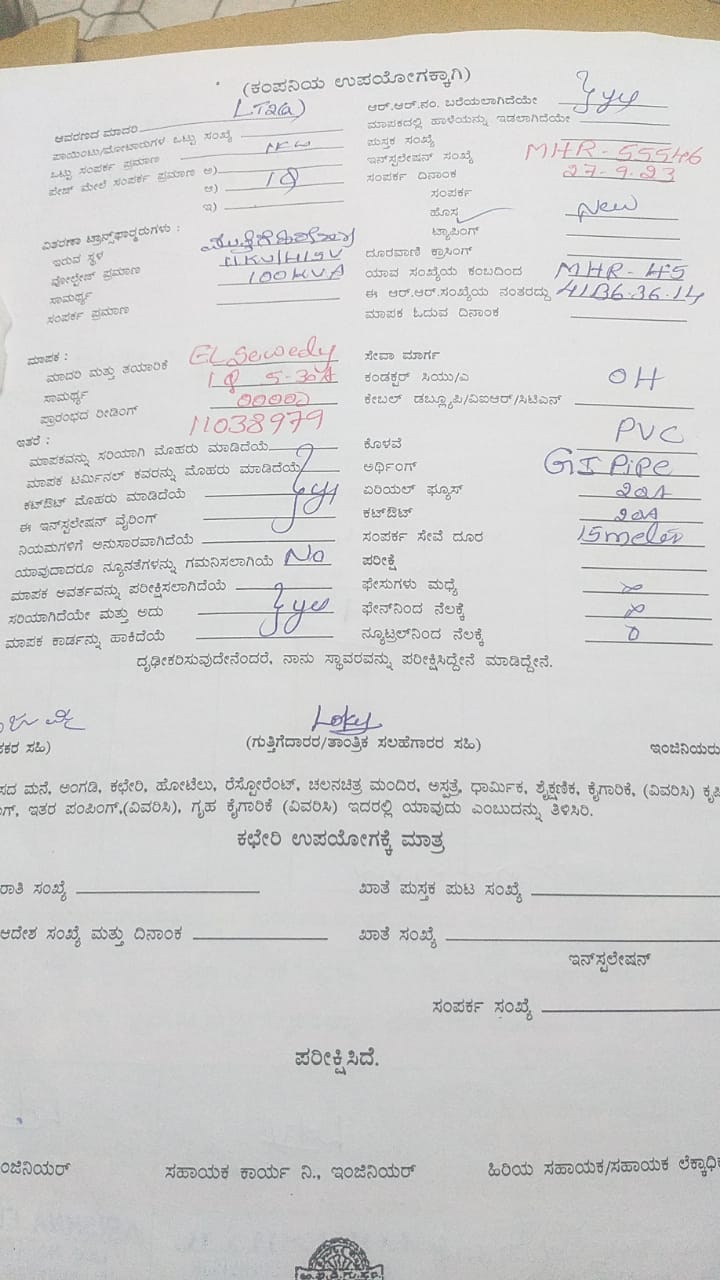 (ಕಂಪನಿಯ ಉಪಯೋಗಕ್ಕಾಗಿ)
ಆವರಣದ ಮಾದರಿ LT2(a)
ಪಾಯಿಂಟು/ಮೋಟಾರುಗಳ ಒಟ್ಟು ಸಂಖ್ಯೆ
ಒಟ್ಟು ಸಂಪರ್ಕ ಪ್ರಮಾಣ
ಪೇಜ್ ಮೇಲೆ ಸಂಪರ್ಕ ಪ್ರಮಾಣ ಅ)
ಆ)
ಇ)
ವಿತರಣಾ ಟ್ರಾನ್ಸ್‌ಫಾರ್‍ಮರುಗಳು :
ಇರುವ ಸ್ಥಳ
ವೋಲ್ಟೇಜ್ ಪ್ರಮಾಣ 11KV/415V
ಸಾಮರ್ಥ್ಯ 100KVA
ಸಂಪರ್ಕ ಪ್ರಮಾಣ
ಆರ್.ಆರ್.ನಂ. ಬರೆಯಲಾಗಿದೆಯೇ yes
ಮಾಪಕದಲ್ಲಿ ಹಾಳೆಯನ್ನು ಇಡಲಾಗಿದೆಯೇ
ಪುಸ್ತಕ ಸಂಖ್ಯೆ
ಇನ್‌ಸ್ಪಲೇಷನ್ ಸಂಖ್ಯೆ MHR-55546
ಸಂಪರ್ಕ ದಿನಾಂಕ 27-9-23
ಸಂಪರ್ಕ
ಹೊಸ New
ಟ್ಯಾಪಿಂಗ್
ದೂರವಾಣಿ ಕ್ರಾಸಿಂಗ್
ಯಾವ ಸಂಖ್ಯೆಯ ಕಂಬದಿಂದ MHR-45
ಈ ಆರ್.ಆರ್.ಸಂಖ್ಯೆಯ ನಂತರದ್ದು 41136.36.14
ಮಾಪಕ ಓದುವ ದಿನಾಂಕ
ಮಾಪಕ :
ಮಾದರಿ ಮತ್ತು ತಯಾರಿಕೆ EL Sewedy
ಸಾಮರ್ಥ್ಯ 1Φ 5-30A
ಪ್ರಾರಂಭದ ರೀಡಿಂಗ್ 00000
11038979
ಇತರೆ :
ಮಾಪಕವನ್ನು ಸರಿಯಾಗಿ ಮೊಹರು ಮಾಡಿದೆಯೆ
ಮಾಪಕ ಟರ್ಮಿನಲ್ ಕವರನ್ನು ಮೊಹರು ಮಾಡಿದೆಯೆ
ಕಟ್‌ಔಟ್ ಮೊಹರು ಮಾಡಿದೆಯೆ yes
ಈ ಇನ್‌ಸ್ಪಲೇಷನ್ ವೈರಿಂಗ್
ನಿಯಮಗಳಿಗೆ ಅನುಸಾರವಾಗಿದೆಯೇ
ಯಾವುದಾದರೂ ನ್ಯೂನತೆಗಳನ್ನು ಗಮನಿಸಲಾಗಿಯೆ No
ಮಾಪಕ ಅವರ್ತವನ್ನು ಪರೀಕ್ಷಿಸಲಾಗಿದೆಯೇ
ಸರಿಯಾಗಿದೆಯೇ ಮತ್ತು ಅದು yes
ಮಾಪಕ ಕಾರ್ಡನ್ನು ಹಾಕಿದೆಯೆ
ಸೇವಾ ಮಾರ್ಗ
ಕಂಡಕ್ಟರ್ ಸಿಯು/ಎ OH
ಕೇಬಲ್ ಡಬ್ಲ್ಯೂಪಿ/ವಿಐಆರ್/ಸಿಟಿಎನ್
ಕೊಳವೆ PVC
ಅರ್ಥಿಂಗ್ GI PiPe
ಏರಿಯಲ್ ಫ್ಯೂಸ್ 20A
ಕಟ್‌ಔಟ್ 20A
ಸಂಪರ್ಕ ಸೇವೆ ದೂರ 15meter
ಪರೀಕ್ಷೆ
ಫೇಸುಗಳು ಮಧ್ಯೆ ∞
ಫೇಸ್‌ನಿಂದ ನೆಲಕ್ಕೆ ∞
ನ್ಯೂಟ್ರಲ್‌ನಿಂದ ನೆಲಕ್ಕೆ 0
ದೃಢೀಕರಿಸುವುದೇನೆಂದರೆ, ನಾನು ಸ್ಥಾವರವನ್ನು ಪರೀಕ್ಷಿಸಿದ್ದೇನೆ ಮಾಡಿದ್ದೇನೆ.
Loky
ಕರ ಸಹಿ) (ಗುತ್ತಿಗೆದಾರರ/ತಾಂತ್ರಿಕ ಸಲಹೆಗಾರರ ಸಹಿ) ಇಂಜಿನಿಯರು
ಸದ ಮನೆ, ಅಂಗಡಿ, ಕಛೇರಿ, ಹೋಟೆಲು, ರೆಸ್ಟೋರೆಂಟ್, ಚಲನಚಿತ್ರ ಮಂದಿರ, ಅಸ್ಪತ್ರೆ, ಧಾರ್ಮಿಕ, ಶೈಕ್ಷಣಿಕ, ಕೈಗಾರಿಕೆ, (ವಿವರಿಸಿ) ಕೃಷಿ
ಗ್, ಇತರ ಪಂಪಿಂಗ್,(ವಿವರಿಸಿ), ಗೃಹ ಕೈಗಾರಿಕೆ (ವಿವರಿಸಿ) ಇದರಲ್ಲಿ ಯಾವುದು ಎಂಬುದನ್ನು ತಿಳಿಸಿರಿ.
ಕಛೇರಿ ಉಪಯೋಗಕ್ಕೆ ಮಾತ್ರ
ರಾತಿ ಸಂಖ್ಯೆ ಖಾತೆ ಪುಸ್ತಕ ಪುಟ ಸಂಖ್ಯೆ
ಆದೇಶ ಸಂಖ್ಯೆ ಮತ್ತು ದಿನಾಂಕ ಖಾತೆ ಸಂಖ್ಯೆ
ಇನ್‌ಸ್ಪಲೇಷನ್
ಸಂಪರ್ಕ ಸಂಖ್ಯೆ
ಪರೀಕ್ಷಿಸಿದೆ.
ಂಜಿನಿಯರ್ ಸಹಾಯಕ ಕಾರ್ಯ ನಿ., ಇಂಜಿನಿಯರ್ ಹಿರಿಯ ಸಹಾಯಕ/ಸಹಾಯಕ ಲೆಕ್ಕಾಧಿಕ